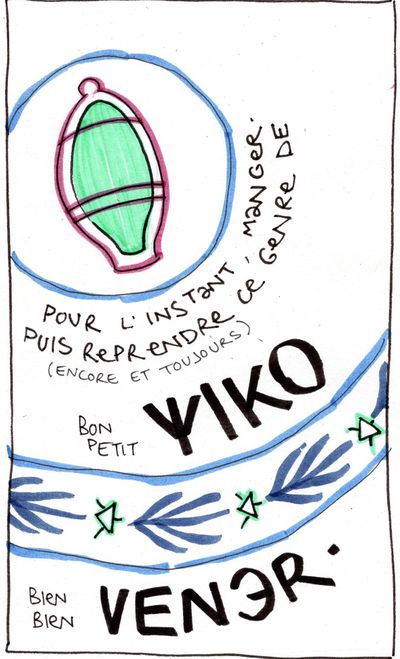 POUR L'INSTANT, MANGER.
PUIS REPRENDRE CE GENRE DE
(ENCORE ET TOUJOURS)
BON
PETIT
ΨIKO
BIEN
BIEN
VENЭR.